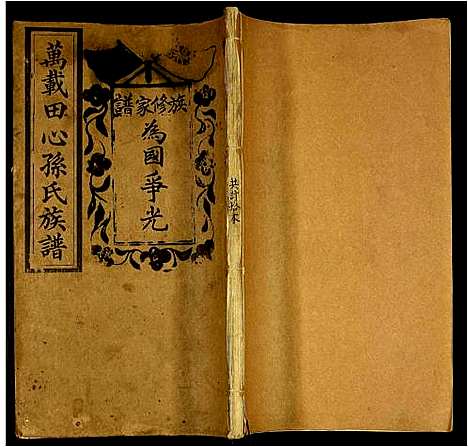 萬載田心孫氏族譜
族修家譜
為國爭光
共弍拾本